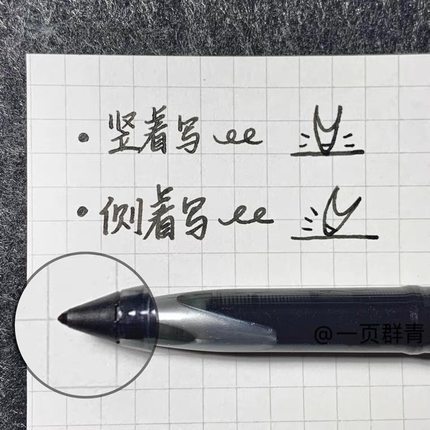 竖着写
侧着写
@一页群青